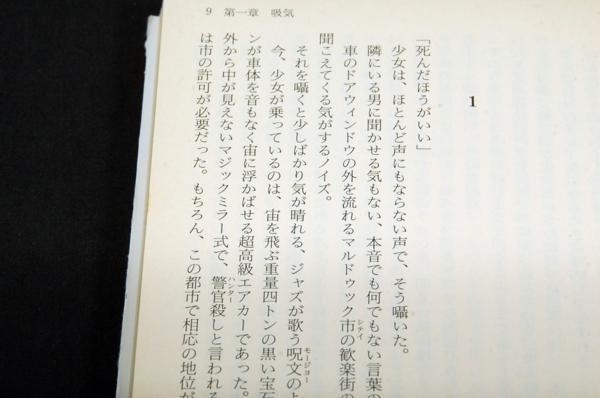 9 第一章 吸気
1
「死んだほうがいい」
少女は、ほとんど声にもならない声で、そう囁いた。
隣にいる男に聞かせる気もない、本音でも何でもない言葉の
車のドアウィンドウの外を流れるマルドゥック市の歓楽街の
シティ
聞こえてくる気がするノイズ。
それを囁くと少しばかり気が晴れる、ジャズが歌う呪文のよ
モージョー
今、少女が乗っているのは、宙を飛ぶ重量四トンの黒い宝石
ンが車体を音もなく宙に浮かばせる超高級エアカーであった。
外から中が見えないマジックミラー式で、警官殺しと言われる
ハンター
は市の許可が必要だった。もちろん、この都市で相応の地位が